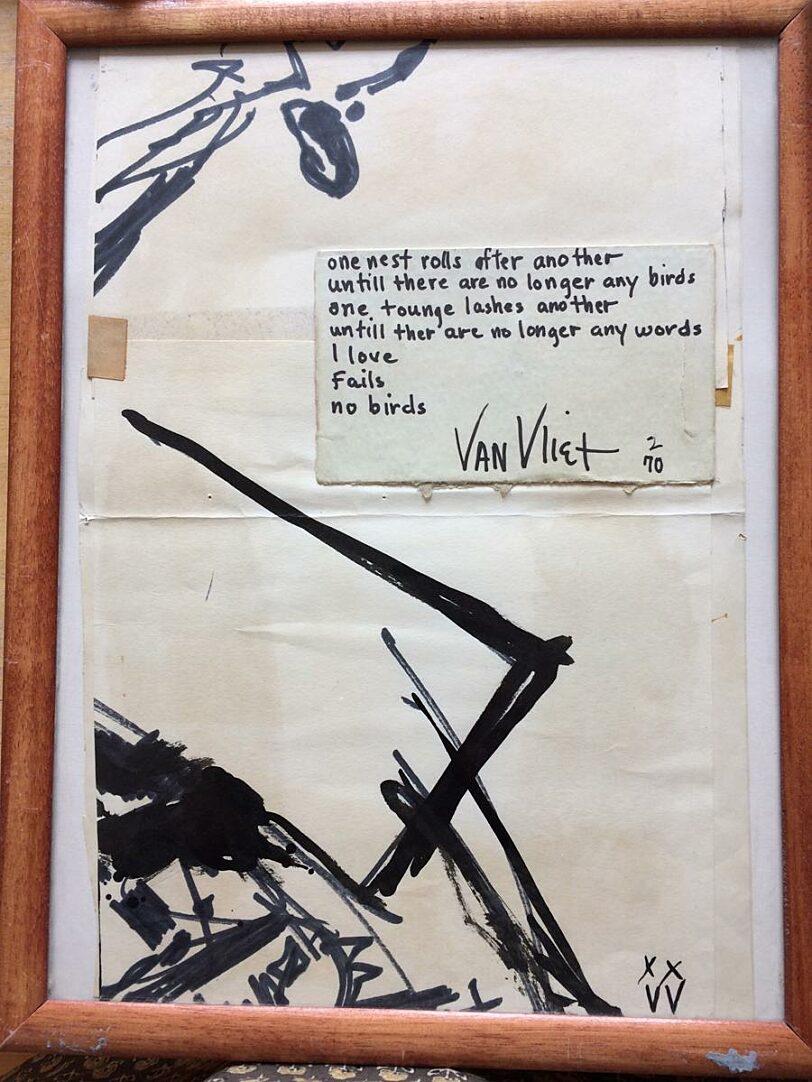 one nest rolls after another
untill there are no longer any birds
one tounge lashes another
untill ther are no longer any words
I love
Fails
no birds
VAN VLIET 2
70
X X
V V